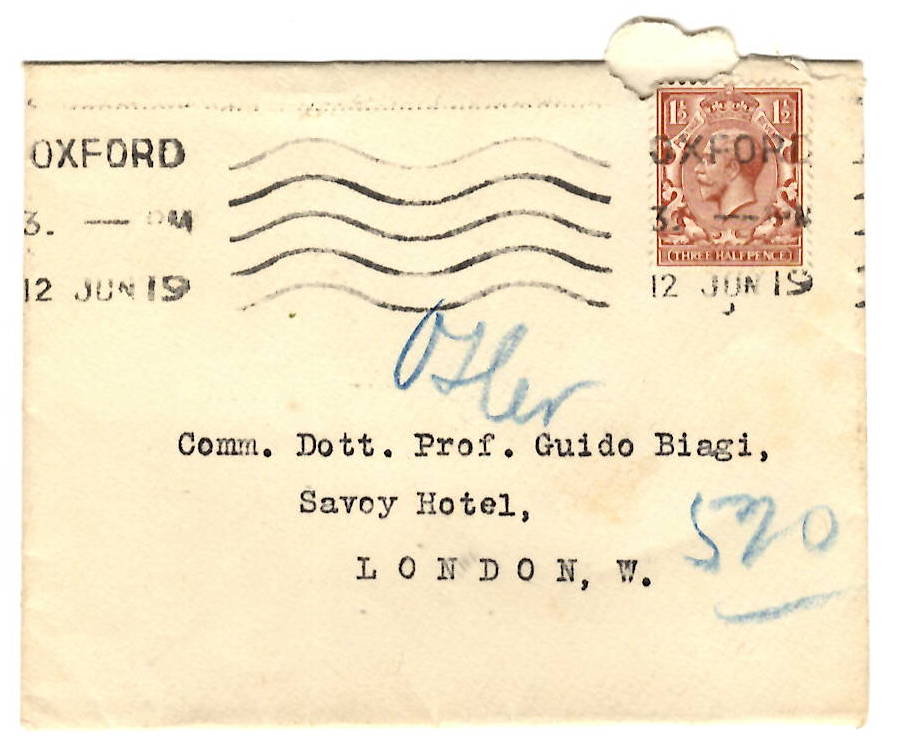 OXFORD
3. — PM
12 JUN 19
1½ 1½
THREE HALFPENCE
OXFORD
3. — PM
12 JUN 19
Osler
Comm. Dott. Prof. Guido Biagi,
Savoy Hotel,
520
LONDON, W.